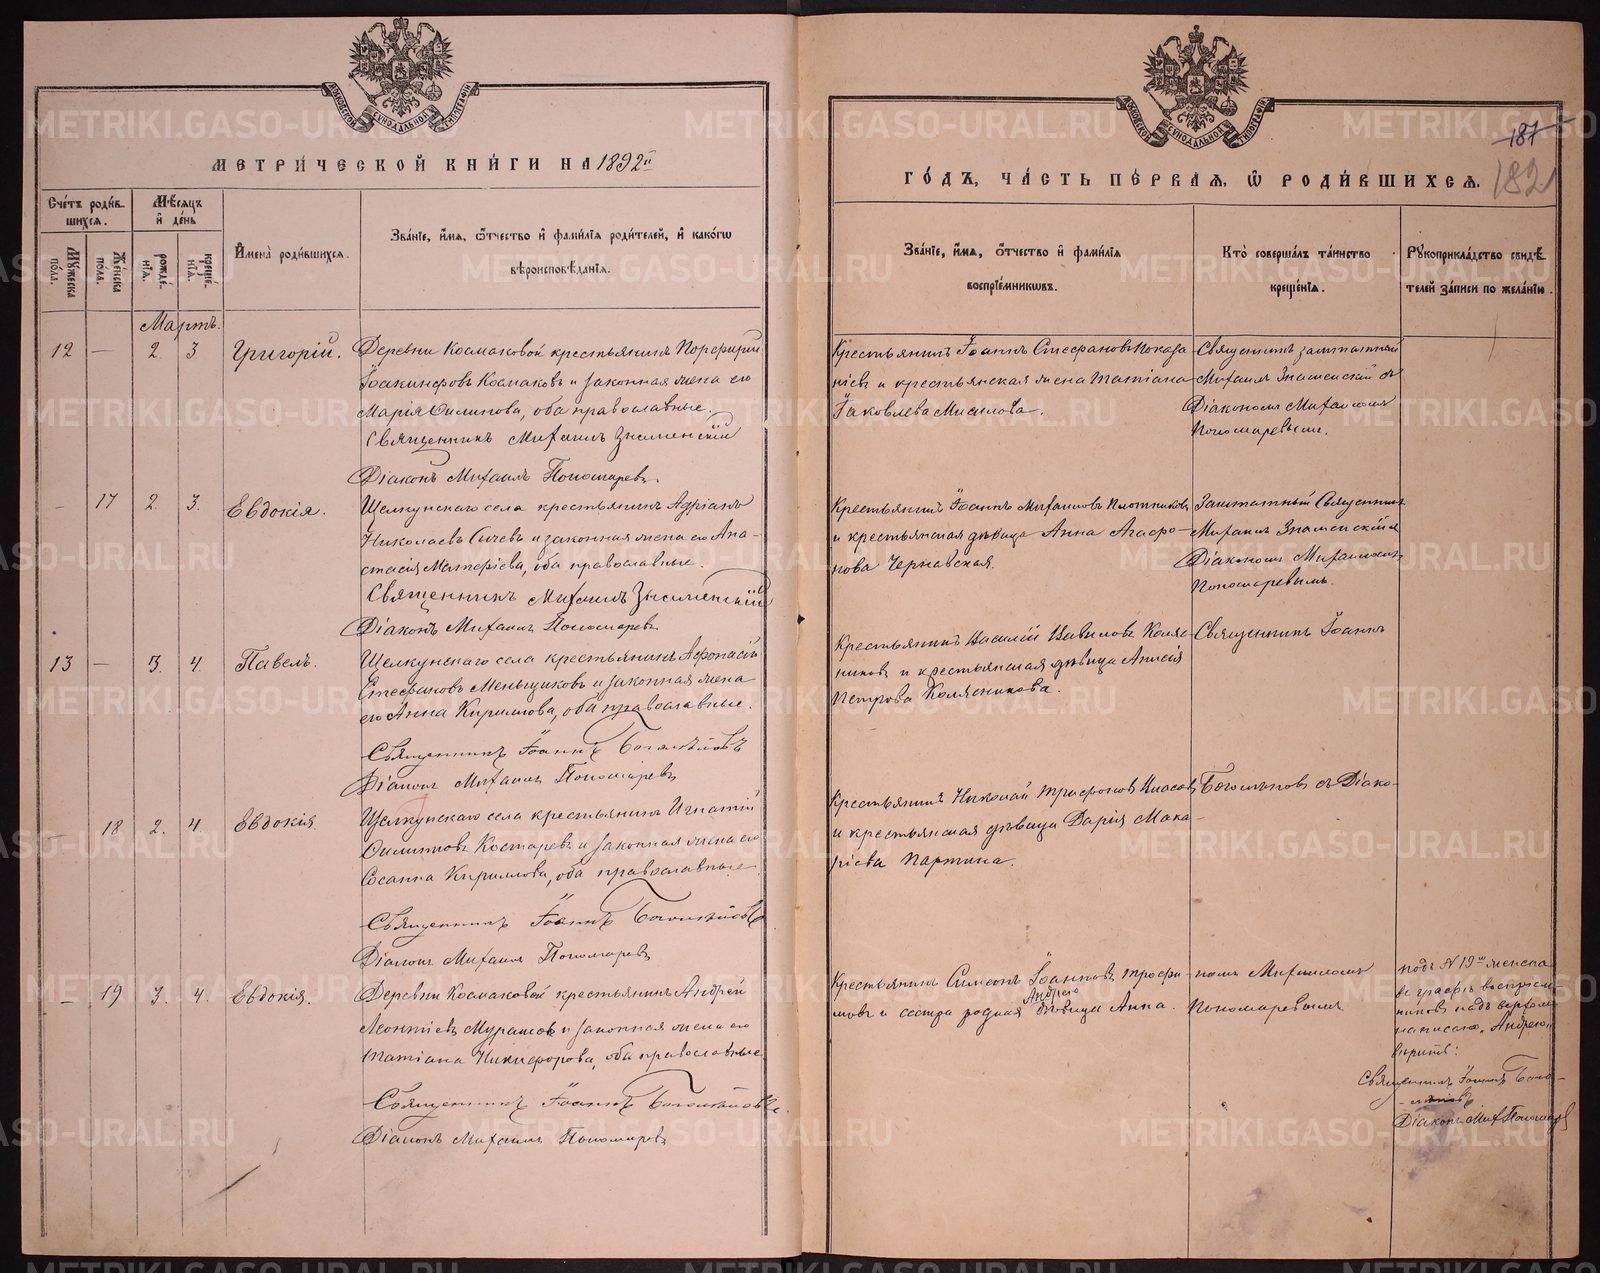 МОСКОВСКОЙ СѴНОДАЛЬНОЙ ТИПОГРАФІИ
МЕТРИ́ЧЕСКОЙ КНИ́ГИ НА 1892й
Сче́тъ роди́в-
шихся.
Мѣ́сяцъ
и҆ де́нь
Мꙋ́жеска
по́ла.
Же́нска
по́ла.
рожде́-
нїѧ.
креще́-
нїѧ.
И҆мена̀ роди́вшихсѧ.
Зва́нїе, и҆́мѧ, ѻ҆́тчество и҆ фами́лїѧ роди́телей, и҆ како́гѡ
вѣроисповѣ́данїѧ.
Мартъ.
12 — 2. 3 Григорій. Деревни Космаковой крестьянинъ Порфирій
Іоакинфовъ Космаковъ и законная жена его
Марія Филипова, оба православные.
Священникъ Михаилъ Знаменскій
Діаконъ Михаилъ Пономаревъ.
— 17 2. 3. Евдокія. Щелкунскаго села крестьянинъ Адріанъ
Николаевъ Сычевъ и законная жена его Ана-
стасія Матфіева, оба православные.
Священникъ Михаилъ Знаменскій
Діаконъ Михаилъ Пономаревъ
13 — 3. 4. Павелъ. Щелкунскаго села крестьянинъ Афонасій
Стефановъ Меньщиковъ и законная жена
его Анна Кирилова, оба православные.
Священникъ Іоаннъ Боголѣповъ
Діаконъ Михаилъ Пономаревъ
— 18 2. 4. Евдокія Щелкунскаго села крестьянинъ Игнатій
Филиповъ Костаревъ и законная жена его
Сосанна Кирилова, оба православные
Священникъ Іоаннъ Боголѣповъ
Діаконъ Михаилъ Пономаревъ
— 19 3. 4. Евдокія. Деревни Космаковой крестьянинъ Андрей
Леонтіевъ Мурашовъ и законная жена его
Татіана Никифорова, оба православные
Священникъ Іоаннъ Боголѣповъ
Діаконъ Михаилъ Пономаревъ
МОСКОВСКОЙ СѴНОДАЛЬНОЙ ТИПОГРАФІИ
187
182
ГО́ДЪ, ЧА́СТЬ ПЕ́РВАѦ, Ѡ҆ РОДИ́ВШИХСѦ.
Зва́нїе, и҆́мѧ, ѻ҆́тчество и҆ фами́лїѧ
воспрїе́мникѡвъ.
Кто̀ соверша́лъ та́инство
креще́нїѧ.
Рꙋкоприкла́дство свидѣ́-
телей за́писи по жела́нїю.
Крестьянинъ Іоаннъ Стефановъ
и крестьянская жена Татіана
Іаковлева
Священникъ заштатный
Михаилъ Знаменскій съ
Діакономъ Михаиломъ
Пономаревымъ.
Крестьянинъ Іоаннъ Михаиловъ Плотниковъ
и крестьянская дѣвица Анна Агафо-
нова Чернавская.
Заштатный Священникъ
Михаилъ Знаменскій съ
Діакономъ Михаиломъ
Пономаревымъ.
Крестьянинъ Василій Вавиловъ Коляс-
никовъ и крестьянская дѣвица Анисія
Петрова Колясникова.
Священникъ Іоаннъ
Крестьянинъ Николай Трифоновъ
и крестьянская дѣвица Дарія Мака-
ріева Партина.
Боголѣповъ съ Діако-
Крестьянинъ Симеонъ Іоанновъ Трофи-
мовъ и сестра родная Андрею дѣвица Анна.
номъ Михаиломъ
Пономаревымъ
подъ № 19м женска
въ графѣ воспріем-
никовъ надъ верхомъ
написано „Андрею"
вѣрить:
Священникъ Іоаннъ Бого-
лѣповъ
Діаконъ Мих Пономаревъ
METRIKI.GASO-URAL.RU